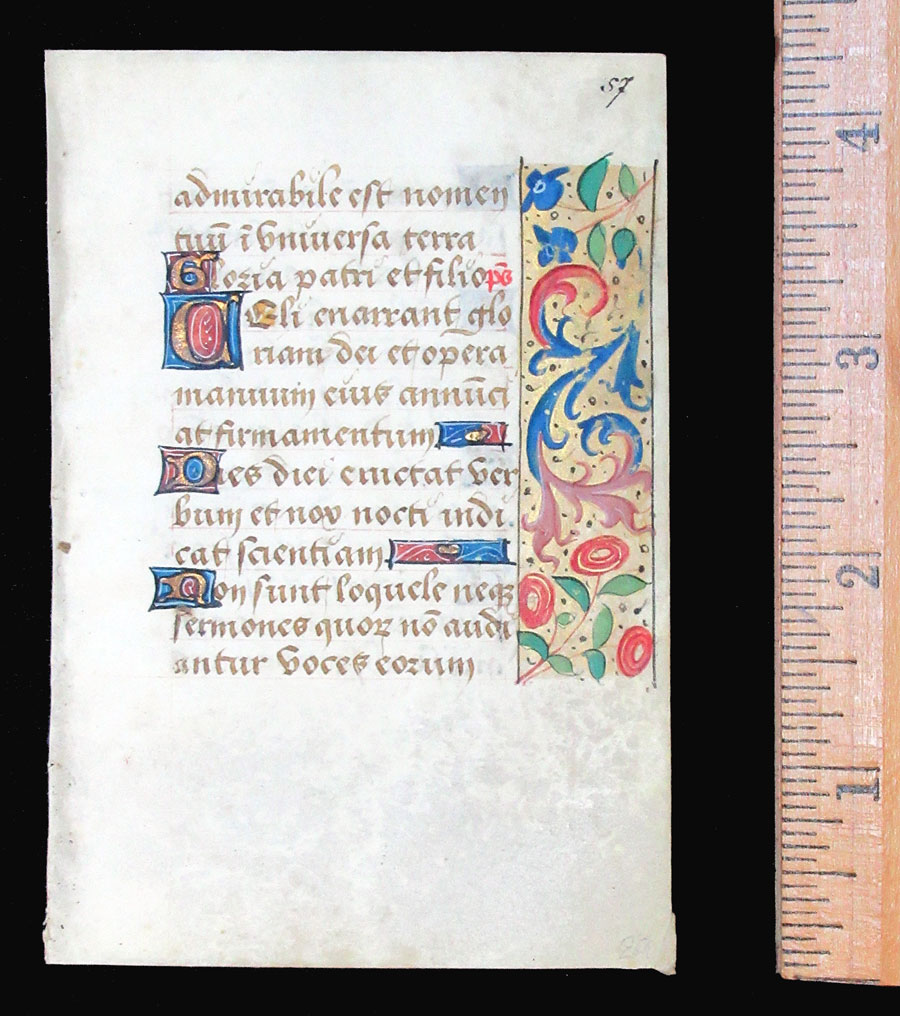 57
admirabile est nomen
tuū ī vniuersa terra
Gloria patri et filio pš
Celi enarrant glo
riam dei et opera
manuum eius annūci
at firmamentum
Dies diei eructat ver
bum et nox nocti indi
cat scientiam
Non sunt loquele neqꝫ
sermones quoꝝ nō audi
antur voces eorum
4
3
2
1